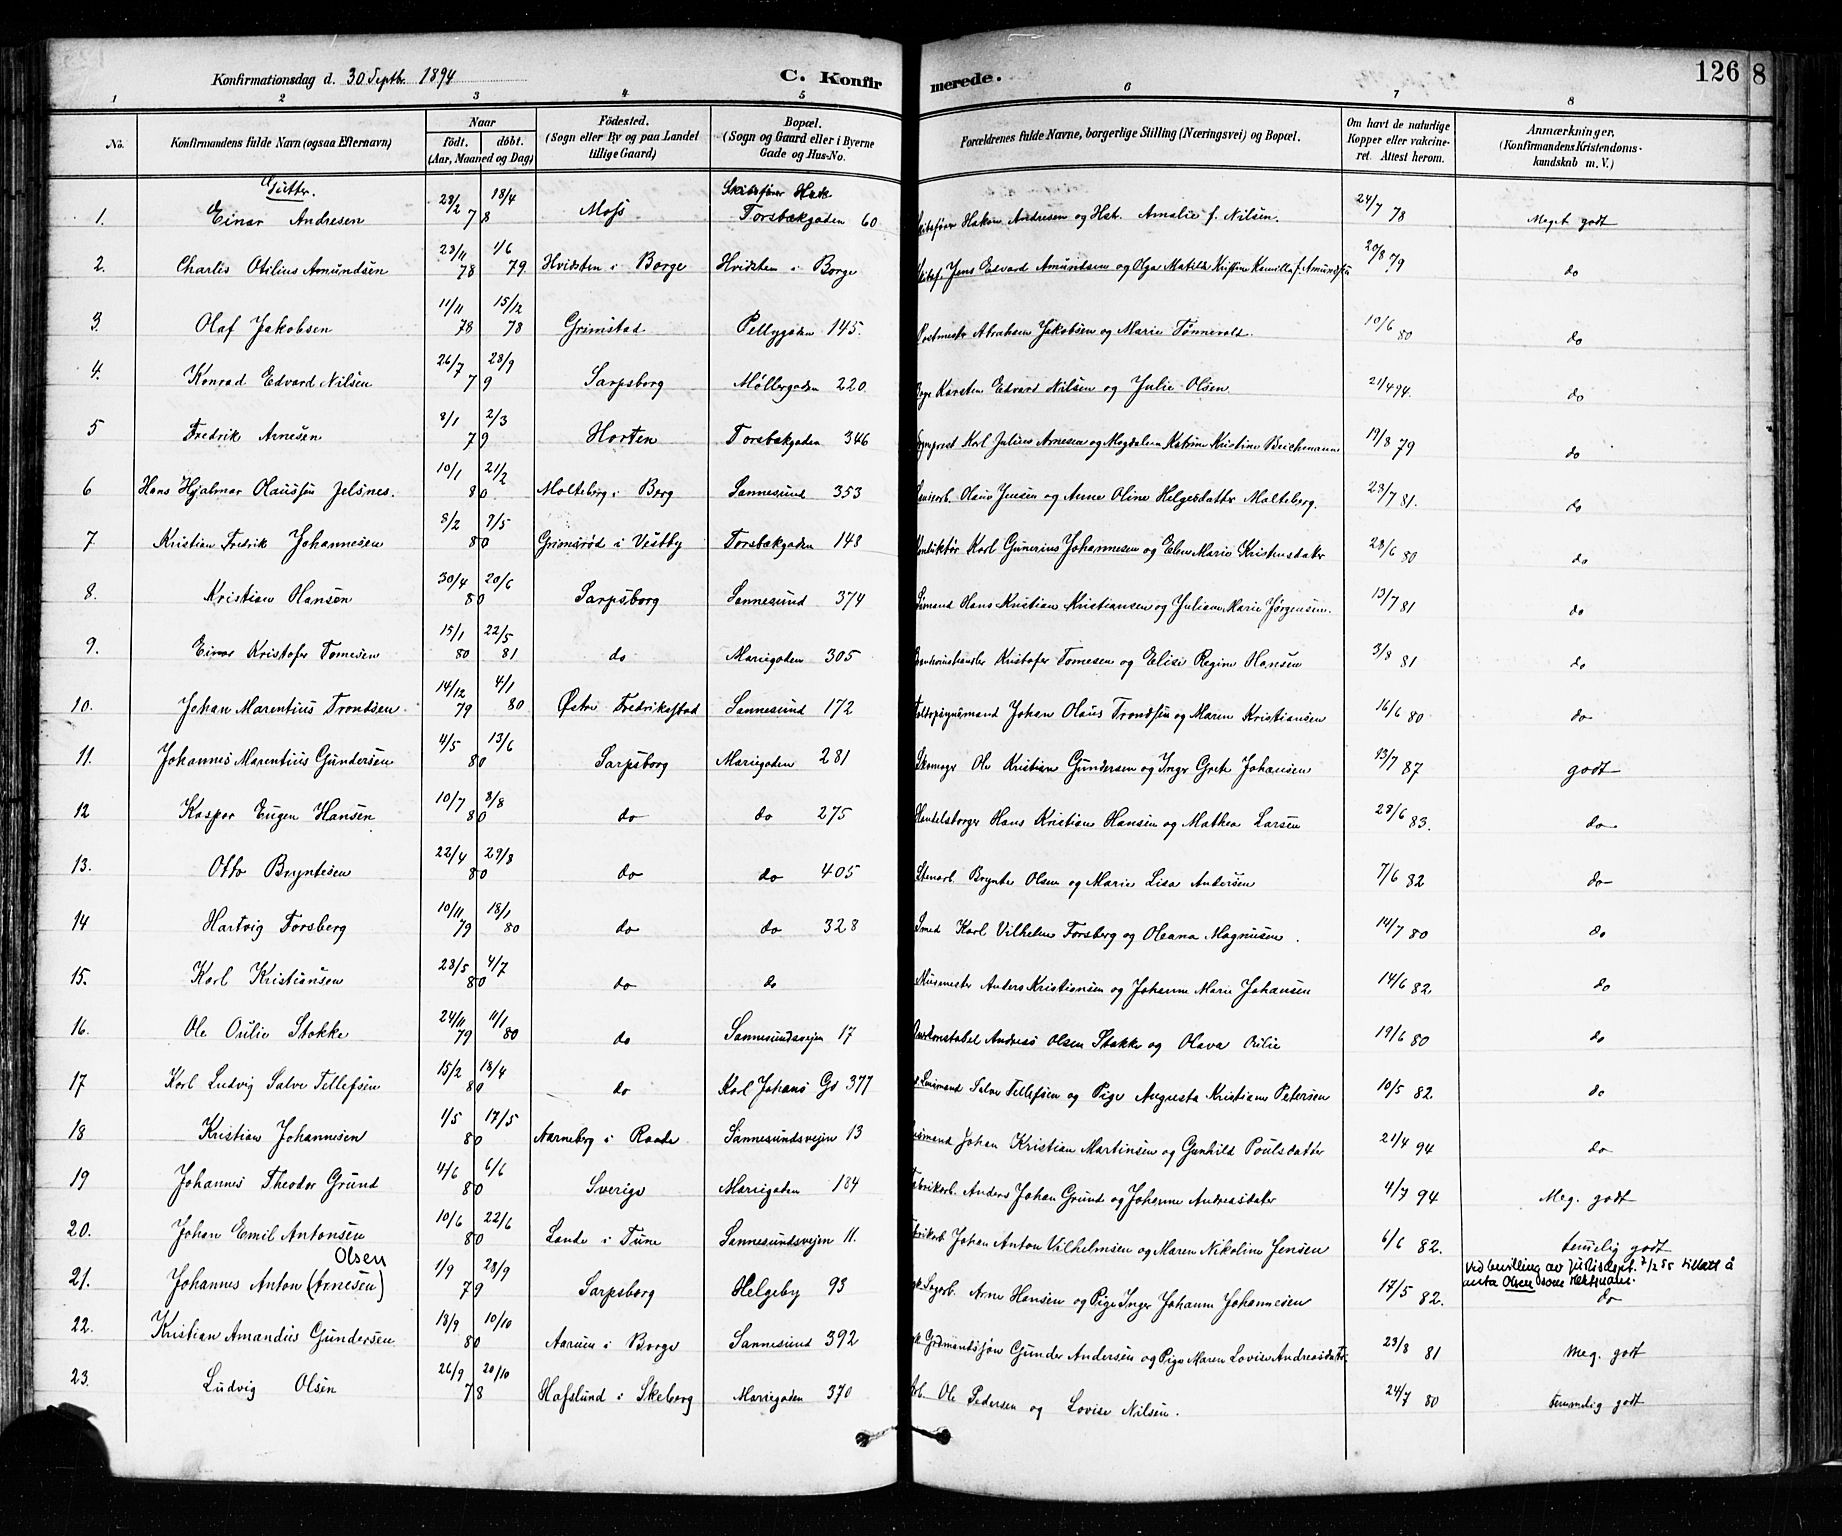 Konfirmationsdag d. 30 Septbr. 1894
C. Konfirmerede.
126
8
1 2 3 4 5 6 7 8
No.
Konfirmandens fulde Navn (ogsaa Efternavn)
Naar
Födt. döbt.
(Aar, Maaned og Dag)
Födested.
(Sogn eller By og paa Landet tillige Gaard)
Bopæl.
(Sogn og Gaard eller i Byerne Gade og Hus-No.
Forældrenes fulde Navne, borgerlige Stilling (Næringsvei) og Bopæl.
Om havt de naturlige Kopper eller vakcineret. Attest herom.
Anmærkninger,
(Konfirmandens Kristendomskundskab m. V.)
Gutter.
1. Einar Andresen 28/2 18/4 78 Moss Torsbakgaden 60 Hakon Andresen og Amalie f. Nilsen. 24/7 78 Meget godt
2. Charles Otilius Amundsen 23/11 78 1/6 79 Hvidsten i Borge Hvidsten i Borge Jens Edvard Amundsen og Olga Matild Kristine Kamilla f. Amundsen 20/8 79 do
3. Olaf Jakobsen 11/11 78 15/12 78 Grimstad Pellygaden 145. Postmester Abraham Jakobsen og Marie Tønnevold. 10/6 80 do
4. Konrad Edvard Nilsen 26/7 28/9 79 Sarpsborg Møllergaden 220. Karsten Edvard Nilsen og Julie Olsen 21/4 94. do
5 Fredrik Arnesen 8/1 2/3 79 Horten Torsbakgaden 346 Sogneprest Karl Julius Arnesen og Magdalena Katrine Kristine Beichmann 19/8 79 do
6 Hans Hjalmar Olaussen Jelsnes. 10/1 21/2 80 Molteberg i Berg Sannesund 353 Olaus Jensen og Anne Oline Helgesdatter Molteberg. 23/7 81. do
7 Kristian Fredrik Johannesen 8/2 9/5 80 Grimsrød i Vestby Torsbakgaden 148 Konduktør Karl Gunerius Johannesen og Elen Marie Kristensdater 28/6 80 do
8. Kristian Hansen 30/4 20/6 80 Sarpsborg Sannesund 374 Hans Kristian Kristiansen og Juliane Marie Jørgensen. 13/7 81 do
9. Einar Kristofer Tomesen 15/1 80 22/5 81 do Mariegaden 305 Kristofer Tomesen og Elise Regine Hansen 3/8 81 do
10. Johan Marentius Trondsen 14/12 79 4/1 80 Østre Fredrikstad Sannesund 172 Johan Olaus Trondsen og Maren Kristiansen 16/6 80 do
11. Johannes Marentius Gundersen 4/5 13/6 80 Sarpsborg Mariegaden 281 Skomager Ole Kristian Gundersen og Inger Grete Johansen 13/7 87 godt
12 Kaspar Eugen Hansen 10/7 8/8 80 do do 275 Handelsborger Hans Kristian Hansen og Mathea Larsen 28/6 83. do
13. Otto Bryntesen 22/4 29/8 80 do do 405 Stenarb. Brynte Olsen og Marie Lisa Andersen 7/6 82 do
14 Hartvig Forsberg 10/11 79 18/1 80 do do 328 Smed Karl Vilhelm Forsberg og Oleana Magnusen. 14/7 80 do
15. Karl Kristiansen 28/5 4/7 80 do do Murmester Anders Kristiansen og Johanne Marie Johansen 14/6 82. do
16. Ole Ourilie Stokke 24/11 79 11/1 80 do Sannesundsvejen 17 Andreas Olsen Stokke og Olava 19/6 80 do
17 Karl Ludvig Salve Tellefsen 15/2 18/4 80 do Karl Johans Gd 377 Salve Tellefsen og Pige Augusta Kristiane Petersen 10/5 82. do
18 Kristian Johannesen 1/5 17/5 80 Aarneberg i Raade Sannesundsvejen 13 Johan Kristian Martinsen og Gunhild Poulsdater 21/4 94 do
19 Johannes Theodor Grund 4/6 6/6 80 Sverige Mariegaden 184 Fabrikarb. Anders Johan Grund og Johanne Andreasdater 4/7 94 Meg. godt
20. Johan Emil Antonsen 10/6 22/6 80 Lande i Tune Sannesundsvejen 11. Johan Anton Vilhelmsen og Maren Nikoline Jensen 6/6 82. temelig godt
Olsen
21. Johannes Anton (Arnesen) 1/9 28/9 79 Sarpsborg Helgeby 93 Arne Hansen og Pige Inger Johanne Johannesen 17/5 82. Ved bevilling av Justisdept. 7/2 55 tillatt å anta Olsen som slektsnavn. do
22. Kristian Amandus Gundersen 18/9 10/10 80 Aarum i Borge Sannesund 392 Gunder Andersen og Pige Maren Lovise Andreasdatr. 23/8 81 Meg. godt
23. Ludvig Olsen 26/9 20/10 78 Hafslund i Skeberg Mariegaden 370 Arb. Ole Pedersen og Lovise Nilsen. 24/7 80 Temmelig godt